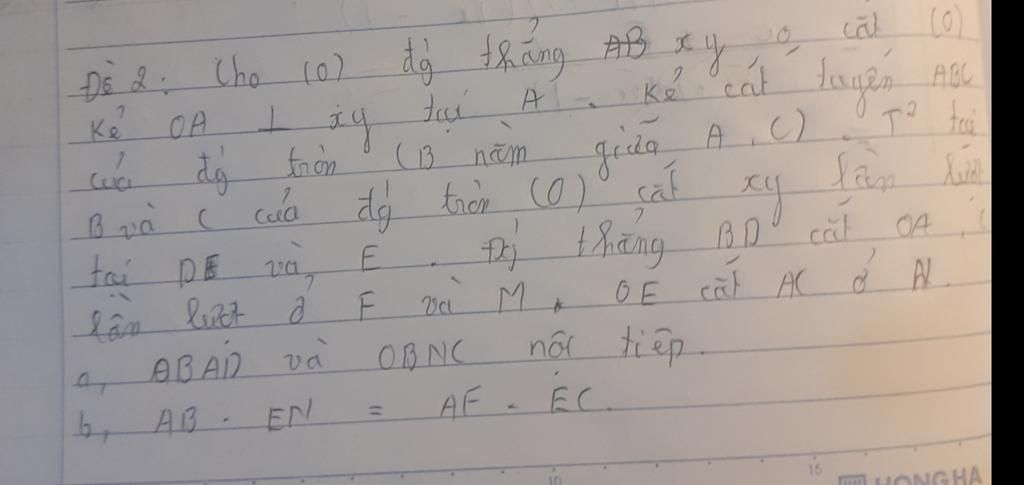 Đề 2: Cho (O) đg thẳng AB xy o cắt (O)
Kẻ OA ⊥ xy tại A. Kẻ cát tuyến ABC
của đg tròn (B nằm giữa A, C). T² tại
B và C của đg tròn (O) cắt xy lần lượt
tại D và E. Đg thẳng BD cắt OA,
lần lượt ở F và M. OE cắt AC ở N.
a, OBAD và OBNC nội tiếp.
b, AB. EN = AF. EC.
10
15
HONGHA